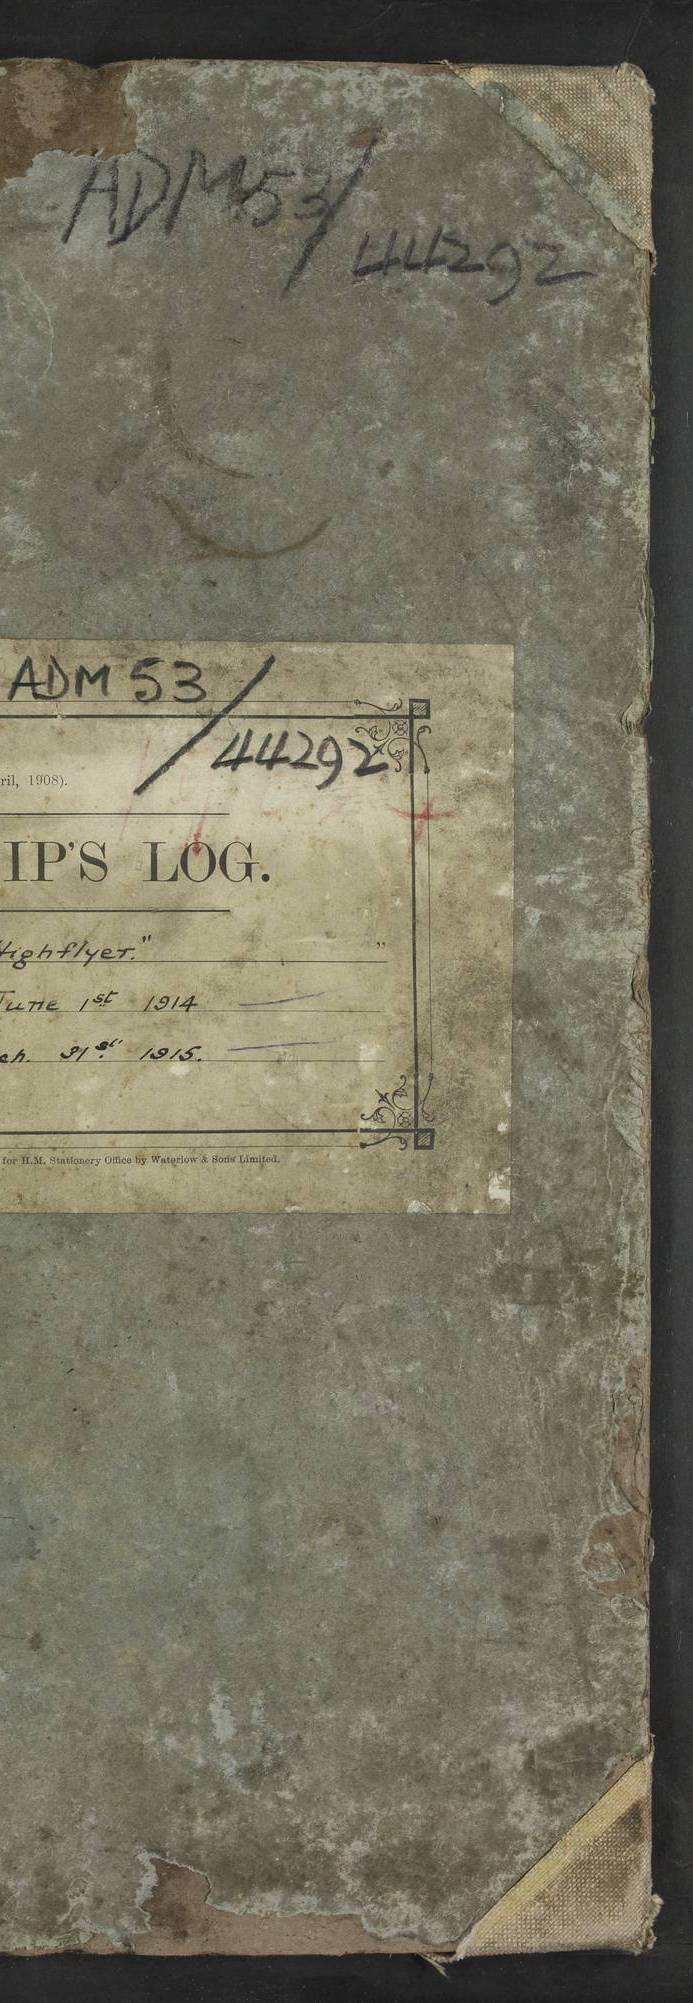 ADM 53/
44292
ADM 53/
44292
ril, 1908).
IP'S LOG.
Highflyer." "
June 1st 1914
ch. 31st 1915.
for H.M. Stationery Office by Waterlow & Sons Limited.